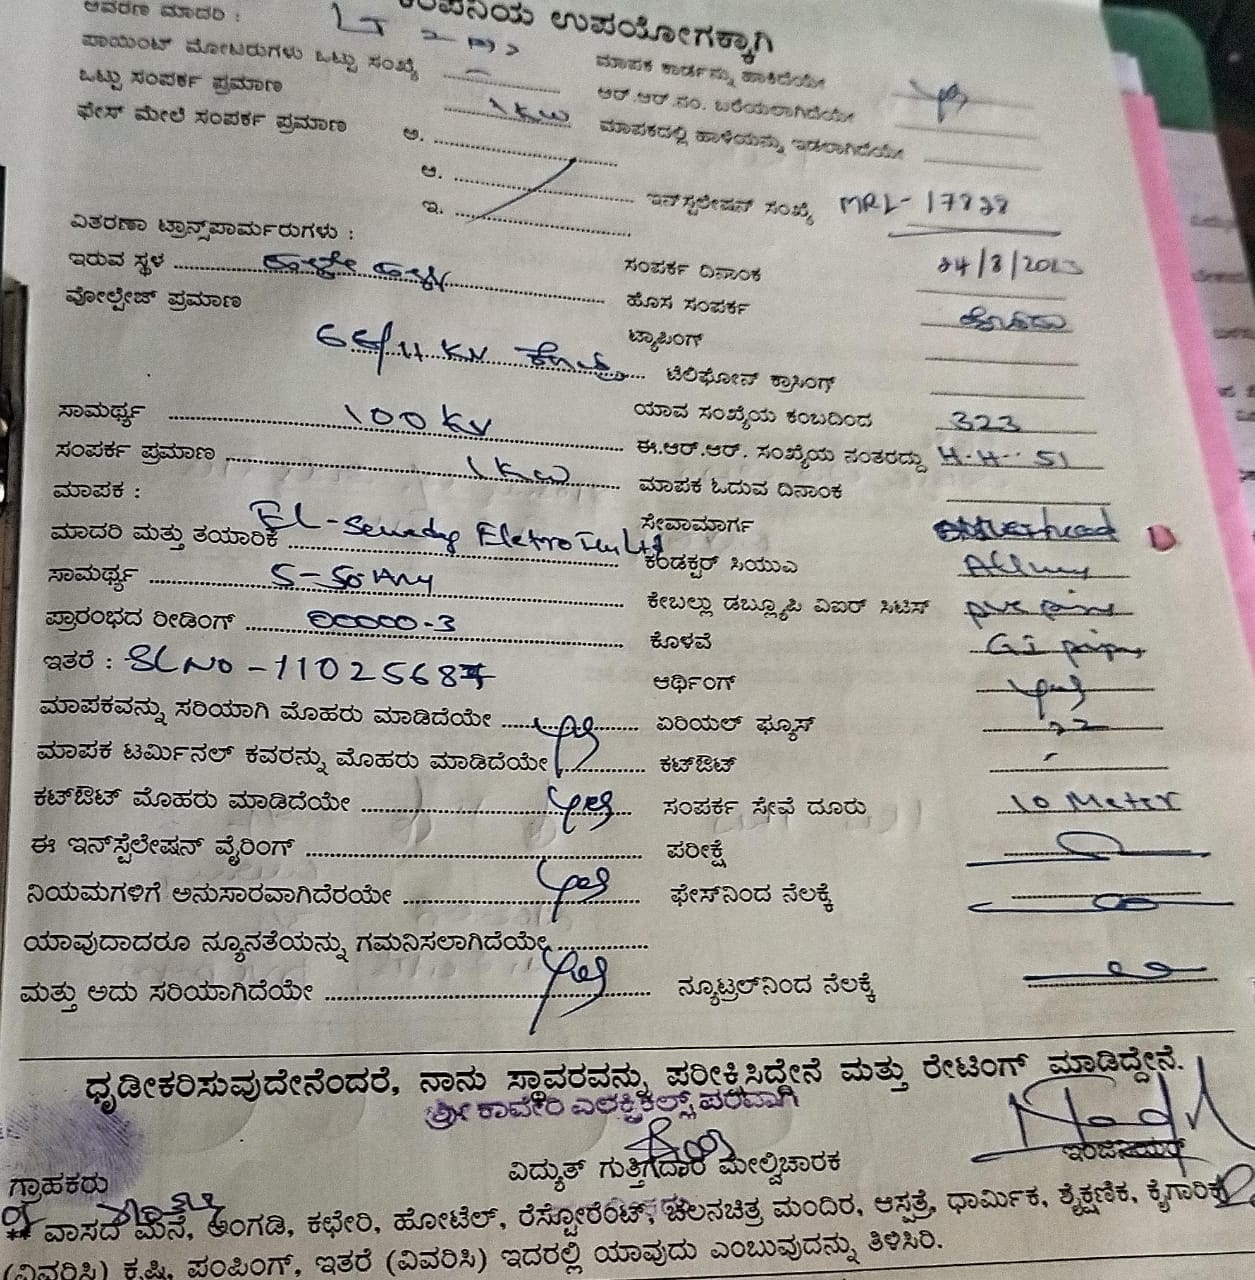 ಆವರಣ ಮಾದರಿ :
ಕಂಪನಿಯ ಉಪಯೋಗಕ್ಕಾಗಿ
LT - 2
ಪಾಯಿಂಟ್ ಮೋಟರುಗಳು ಒಟ್ಟು ಸಂಖ್ಯೆ
ಮಾಪಕ ಕಾರ್ಡನ್ನು ಹಾಕಿದೆಯೇ
ಒಟ್ಟು ಸಂಪರ್ಕ ಪ್ರಮಾಣ 1 KW
ಆರ್.ಆರ್.ನಂ. ಬರೆಯಲಾಗಿದೆಯೇ yes
ಫೇಸ್ ಮೇಲೆ ಸಂಪರ್ಕ ಪ್ರಮಾಣ ಅ.
ಮಾಪಕದಲ್ಲಿ ಹಾಳೆಯನ್ನು ಇಡಲಾಗಿದೆಯೇ
ಆ.
ಇನ್‌ಸ್ಟಲೇಷನ್ ಸಂಖ್ಯೆ MRL-17828
ಇ.
ವಿತರಣಾ ಟ್ರಾನ್ಸ್‌ಪಾರ್ಮರುಗಳು :
ಇರುವ ಸ್ಥಳ
ಸಂಪರ್ಕ ದಿನಾಂಕ 24/8/2013
ವೋಲ್ಟೇಜ್ ಪ್ರಮಾಣ 66/11 KV
ಹೊಸ ಸಂಪರ್ಕ
ಟ್ಯಾಪಿಂಗ್
ಟೆಲಿಫೋನ್ ಕ್ರಾಸಿಂಗ್
ಸಾಮರ್ಥ್ಯ 100 KV
ಯಾವ ಸಂಖ್ಯೆಯ ಕಂಬದಿಂದ 323
ಸಂಪರ್ಕ ಪ್ರಮಾಣ 1 KW
ಈ.ಆರ್.ಆರ್. ಸಂಖ್ಯೆಯ ನಂತರದ್ದು H.H. 51
ಮಾಪಕ :
ಮಾಪಕ ಓದುವ ದಿನಾಂಕ
ಮಾದರಿ ಮತ್ತು ತಯಾರಿಕೆ EL-
ಸೇವಾಮಾರ್ಗ overhead
ಸಾಮರ್ಥ್ಯ 5-30 Amp
ಕಂಡಕ್ಟರ್ ಸಿಯುಎ
ಪ್ರಾರಂಭದ ರೀಡಿಂಗ್ 00000-3
ಕೇಬಲ್ಲು ಡಬ್ಲ್ಯೂಪಿ ವಿಐಆರ್ ಸಿಟಿಸ್ pvc
ಇತರೆ : SL NO - 11025687
ಕೊಳವೆ GI pipe
ಆರ್ಥಿಂಗ್ yes
ಮಾಪಕವನ್ನು ಸರಿಯಾಗಿ ಮೊಹರು ಮಾಡಿದೆಯೇ yes
ಏರಿಯಲ್ ಫ್ಯೂಸ್
ಮಾಪಕ ಟರ್ಮಿನಲ್ ಕವರನ್ನು ಮೊಹರು ಮಾಡಿದೆಯೇ
ಕಟ್‌ಔಟ್
ಕಟ್‌ಔಟ್ ಮೊಹರು ಮಾಡಿದೆಯೇ yes
ಸಂಪರ್ಕ ಸೇವೆ ದೂರು 10 Meter
ಈ ಇನ್‌ಸ್ಟೆಲೇಷನ್ ವೈರಿಂಗ್
ಪರೀಕ್ಷೆ
ನಿಯಮಗಳಿಗೆ ಅನುಸಾರವಾಗಿದೆರಯೇ yes
ಫೇಸ್‌ನಿಂದ ನೆಲಕ್ಕೆ
ಯಾವುದಾದರೂ ನ್ಯೂನತೆಯನ್ನು ಗಮನಿಸಲಾಗಿದೆಯೇ
ಮತ್ತು ಅದು ಸರಿಯಾಗಿದೆಯೇ yes
ನ್ಯೂಟ್ರಲ್‌ನಿಂದ ನೆಲಕ್ಕೆ
ಧೃಡೀಕರಿಸುವುದೇನೆಂದರೆ, ನಾನು ಸ್ಥಾವರವನ್ನು ಪರೀಕ್ಷಿಸಿದ್ದೇನೆ ಮತ್ತು ರೇಟಿಂಗ್ ಮಾಡಿದ್ದೇನೆ.
ಶ್ರೀ ಕಾವೇರಿ ಎಲೆಕ್ಟ್ರಿಕಲ್ಸ್ ಪರವಾಗಿ
ಗ್ರಾಹಕರು
ವಿದ್ಯುತ್ ಗುತ್ತಿಗೆದಾರ ಮೇಲ್ವಿಚಾರಕ
ಇಂಜಿನಿಯರ್
** ವಾಸದ ಮನೆ, ಅಂಗಡಿ, ಕಛೇರಿ, ಹೋಟೆಲ್, ರೆಸ್ಟೋರೆಂಟ್, ಚಲನಚಿತ್ರ ಮಂದಿರ, ಆಸ್ಪತ್ರೆ, ಧಾರ್ಮಿಕ, ಶೈಕ್ಷಣಿಕ, ಕೈಗಾರಿಕೆ
(ವಿವರಿಸಿ) ಕೃಷಿ, ಪಂಪಿಂಗ್, ಇತರೆ (ವಿವರಿಸಿ) ಇದರಲ್ಲಿ ಯಾವುದು ಎಂಬುವುದನ್ನು ತಿಳಿಸಿರಿ.